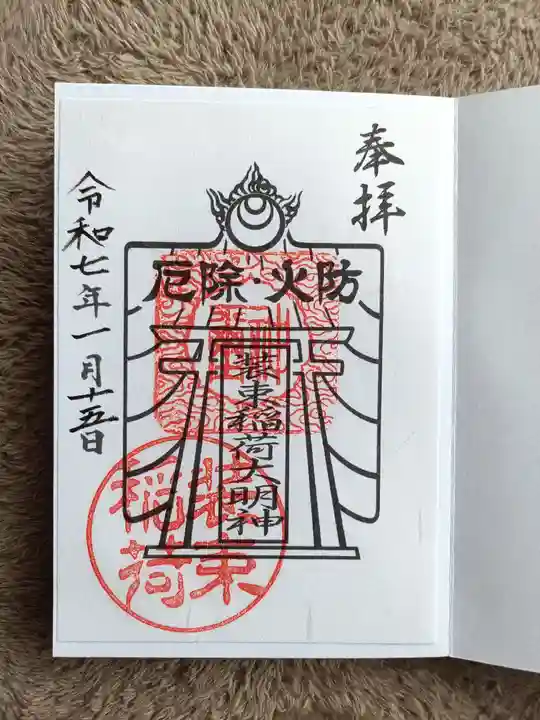 奉拝
厄除・火防
装束稲荷大明神
令和七年一月十五日
装束
稲荷